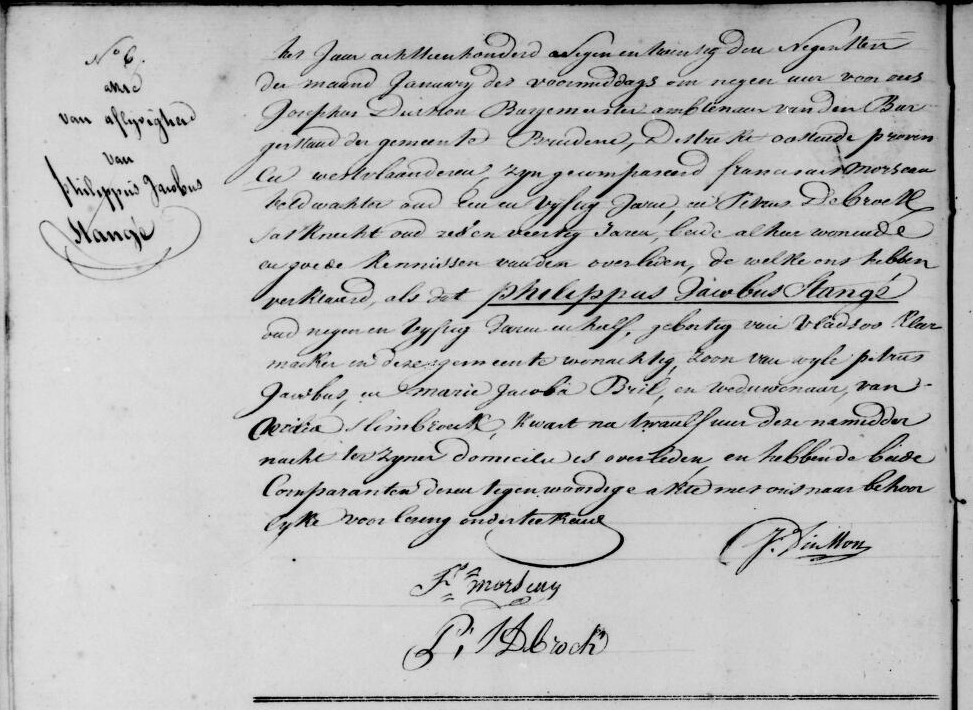 N° 6.
akte
van aflyvigheid
van
philippus Jacobus
Stangé
het Jaar achttienhonderd negenentwintig den Negensten
der maand January des voormiddags om negen uur voor ons
Josephus Burgemeester ambtenaar van den Bur
gerstand der gemeente Bredene, Distrikt oostende proven
cie westvlaanderen, zyn gecompareerd franciscus morseau
veldwahter oud een en vyftig Jaren, en Petrus Debrock
knecht oud zes en veertig Jaren, beide alhier wonende
en goede kennissen vanden overleden, de welke ons hebben
verklaard, als dat philippus Jacobus Stangé
oud negen en vyftig Jaren en half, gebortig van Vladsloo
maeker in deze gemeente wonachtig, Zoon van wyle petrus
Jacobus, en marie Jacoba Bril, en weduwenaar, van
Slimbroeck, kwart na twaalf uur deze namidder
nacht ter zyner domicilie is overleden, en hebben de beide
Comparanten deze tegenwoordige akte met ons naar behoor
lyke voorlesing onderteekend
J.
Fs morseuy
P, DBrock